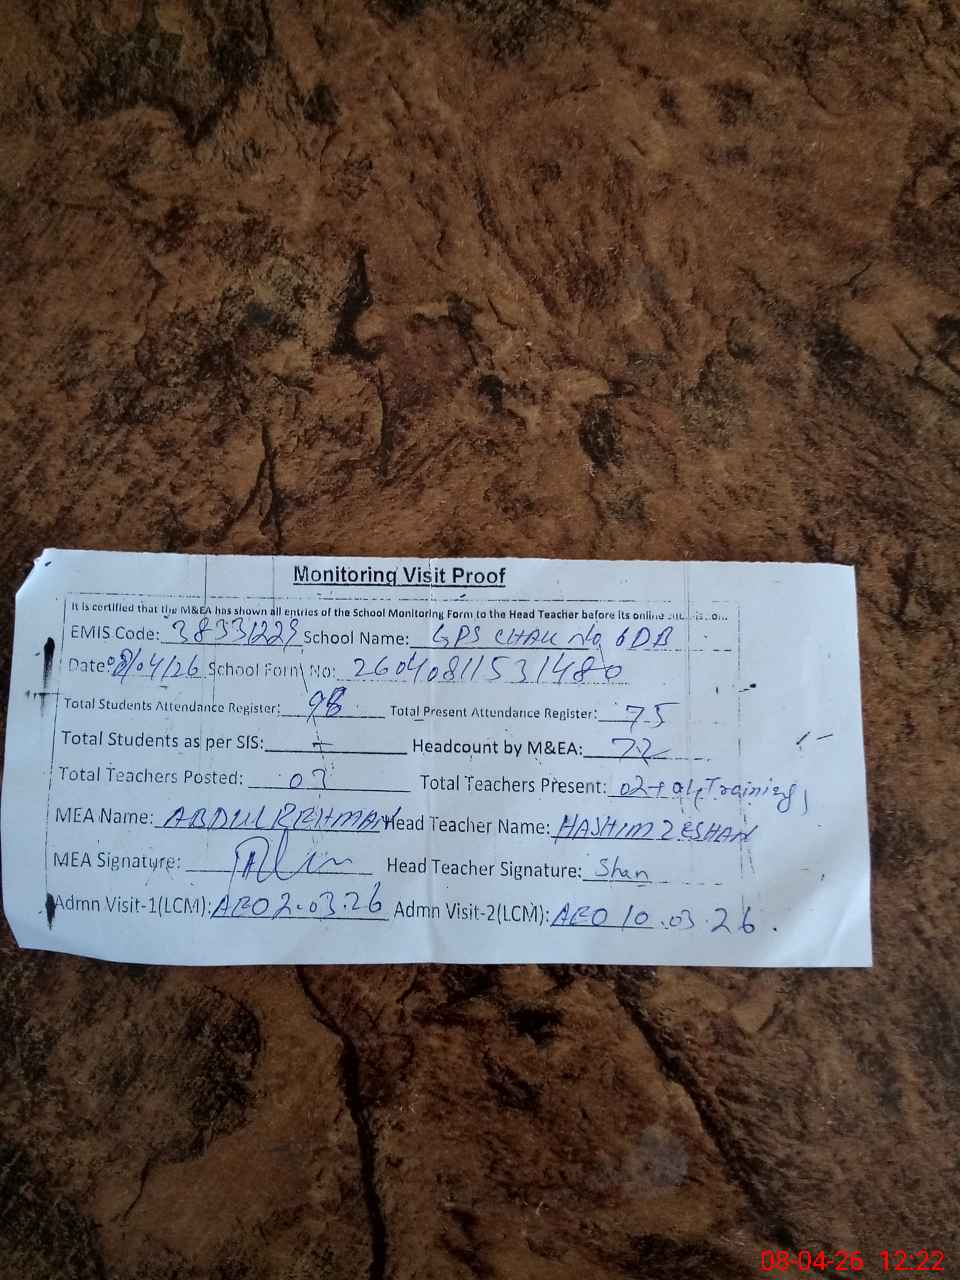 Monitoring Visit Proof
It is certified that the M&EA has shown all entries of the School Monitoring Form to the Head Teacher before its online
EMIS Code: 38331229 School Name: GPS CHAK No 6DB
Date: 08/04/26 School Form No: 26040811531480
Total Students Attendance Register: 98 Total Present Attendance Register: 75
Total Students as per SIS: Headcount by M&EA: 72
Total Teachers Posted: 03 Total Teachers Present: 02+01, Training
MEA Name: ABDUL REHMAN Head Teacher Name: HASHIM ZESHAN
MEA Signature: Head Teacher Signature: Shan
Admn Visit-1(LCM): AEO 2.03.26 Admn Visit-2(LCM): AEO 10.03.26.
08-04-26 12:22